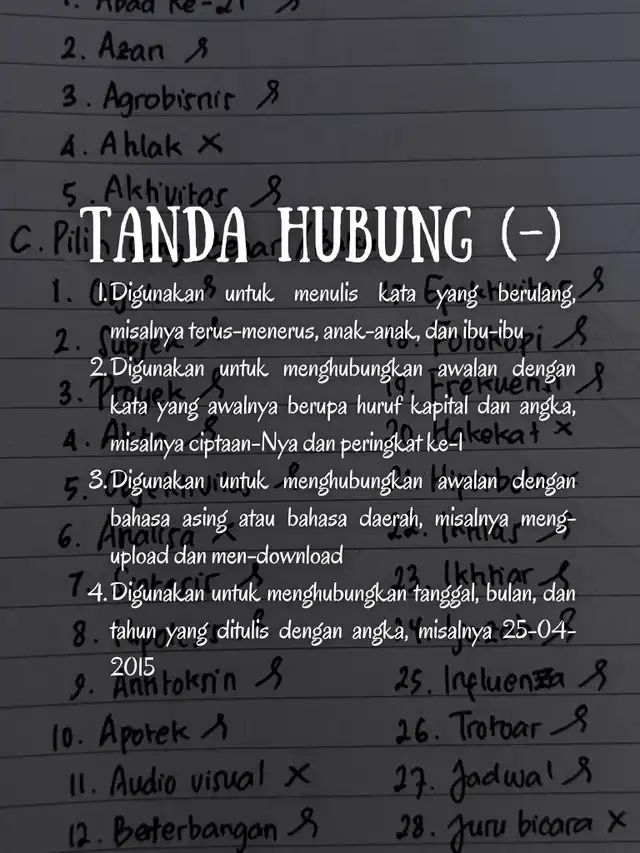 1. Abad ke-21
2. Azan
3. Agrobisnis
4. Ahlak ×
5. Aktivitas
TANDA HUBUNG (-)
C. Pilih
1. Digunakan untuk menulis kata yang berulang,
misalnya terus-menerus, anak-anak, dan ibu-ibu
2. Digunakan untuk menghubungkan awalan dengan
kata yang awalnya berupa huruf kapital dan angka,
misalnya ciptaan-Nya dan peringkat ke-1
3. Digunakan untuk menghubungkan awalan dengan
bahasa asing atau bahasa daerah, misalnya meng-
upload dan men-download
4. Digunakan untuk menghubungkan tanggal, bulan, dan
tahun yang ditulis dengan angka, misalnya 25-04-
2015
1.
2. Subjek
3. Proyek
4.
5.
6. Analisa ×
7.
8.
9. Antitoksin
10. Apotek
11. Audio visual ×
12. Beterbangan
18. Fotokopi
19. Frekuensi
20. Hakekat ×
22. Ikhlas
23. Ikhtiar
25. Influenza
26. Trotoar
27. Jadwal
28. Juru bicara ×